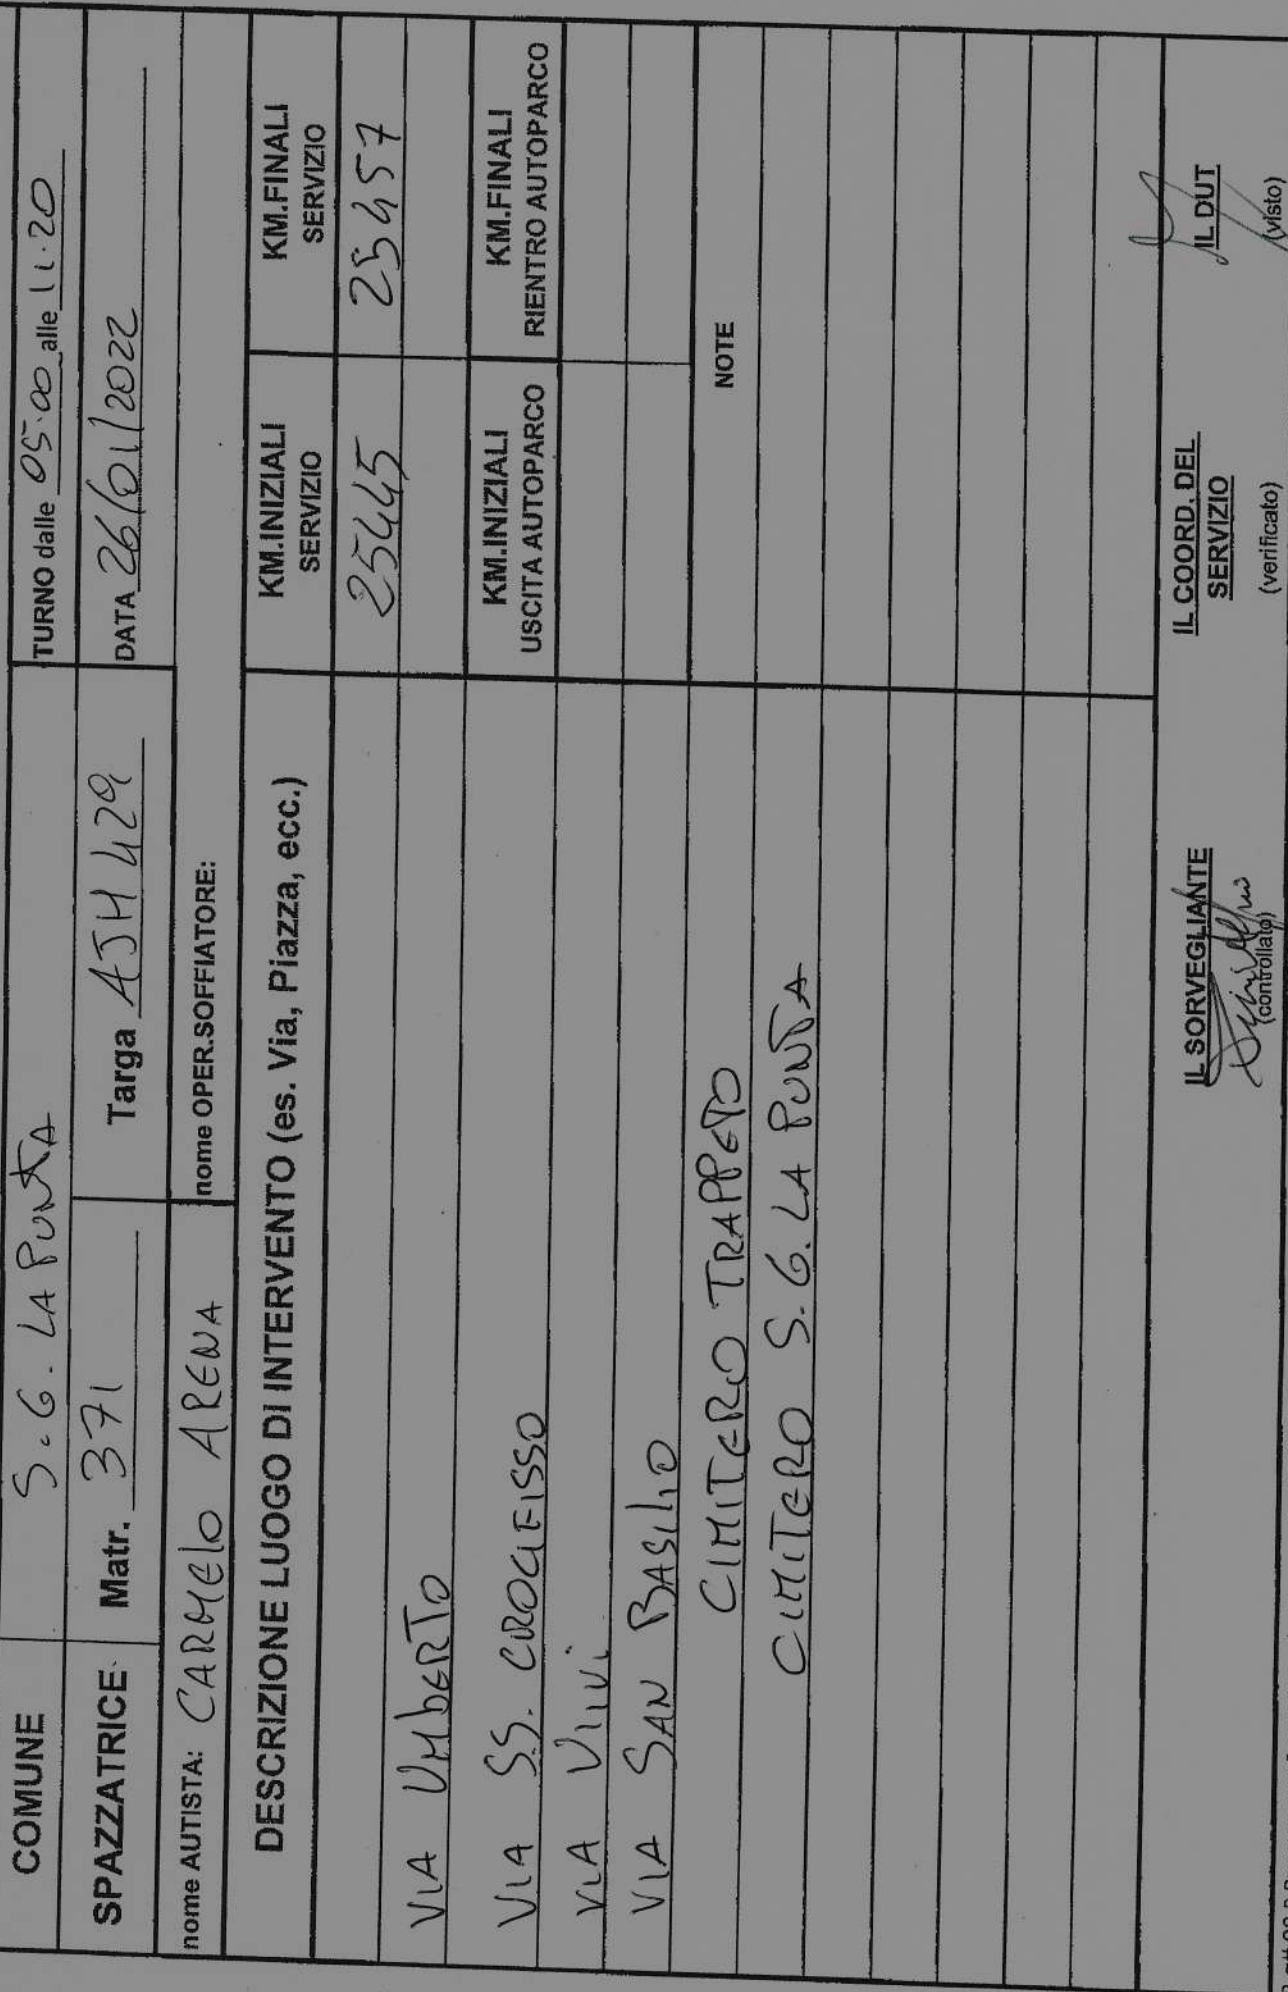 COMUNE S.G. LA PUNTA TURNO dalle 05.00 alle 11.20
SPAZZATRICE Matr. 371 Targa AJH429 DATA 26/01/2022
nome AUTISTA: CARMELO ARENA nome OPER.SOFFIATORE:
DESCRIZIONE LUOGO DI INTERVENTO (es. Via, Piazza, ecc.)
KM.INIZIALI SERVIZIO
KM.FINALI SERVIZIO
25445 25457
VIA UMBERTO
KM.INIZIALI USCITA AUTOPARCO
KM.FINALI RIENTRO AUTOPARCO
VIA SS. CROCIFISSO
VIA
VIA SAN BASILIO
CIMITERO TRAPPETO
NOTE
CIMITERO S.G. LA PUNTA
IL SORVEGLIANTE
(controllato)
IL COORD. DEL
SERVIZIO
(verificato)
IL DUT
(visto)